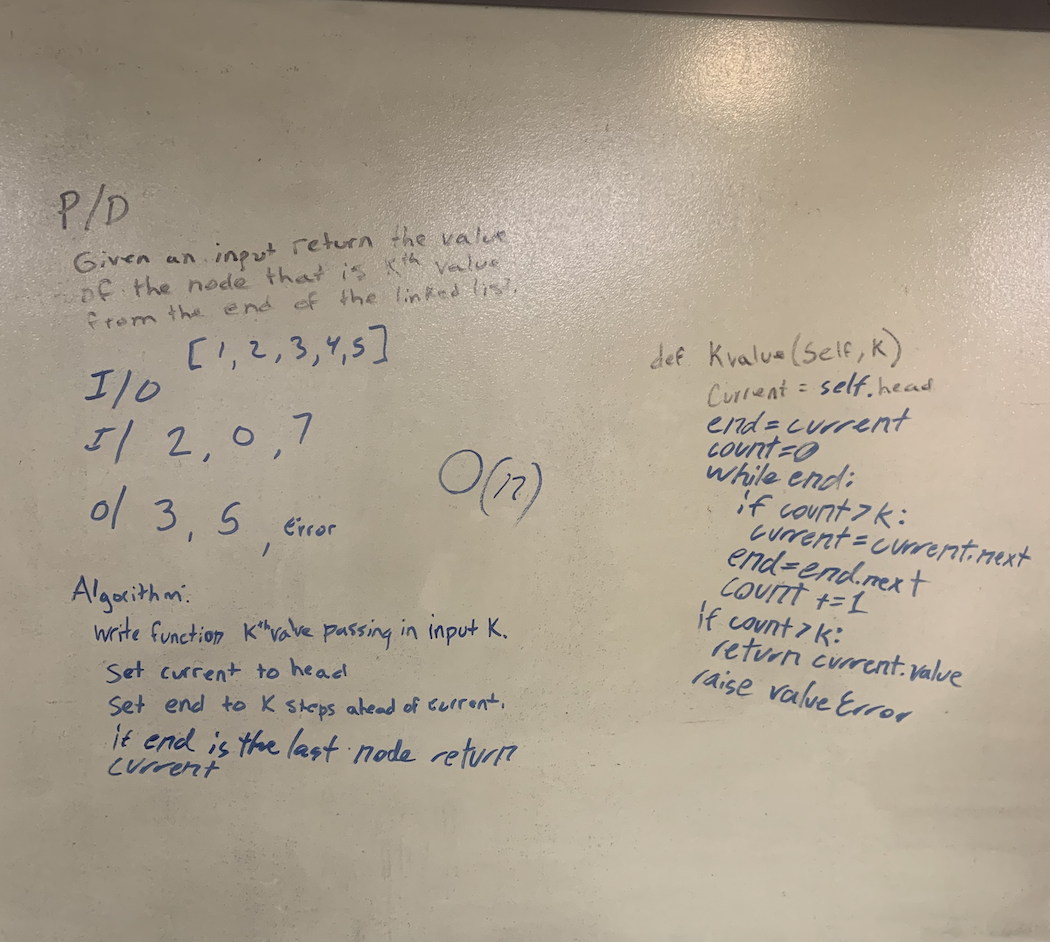 P/D
Given an input return the value
of the node that is Kth value
from the end of the linked list.
[1,2,3,4,5]
I/O
I/ 2, 0, 7
O/ 3, 5, Error
O(n)
Algorithm:
Write function Kthvalve passing in input K.
Set current to head
Set end to K steps ahead of current.
if end is the last node return
current
def Kvalue(Self, K)
Current = self.head
end = current
count=0
while end:
if count > k:
current = current.next
end = end.next
count += 1
if count > k:
return current.value
raise value Error